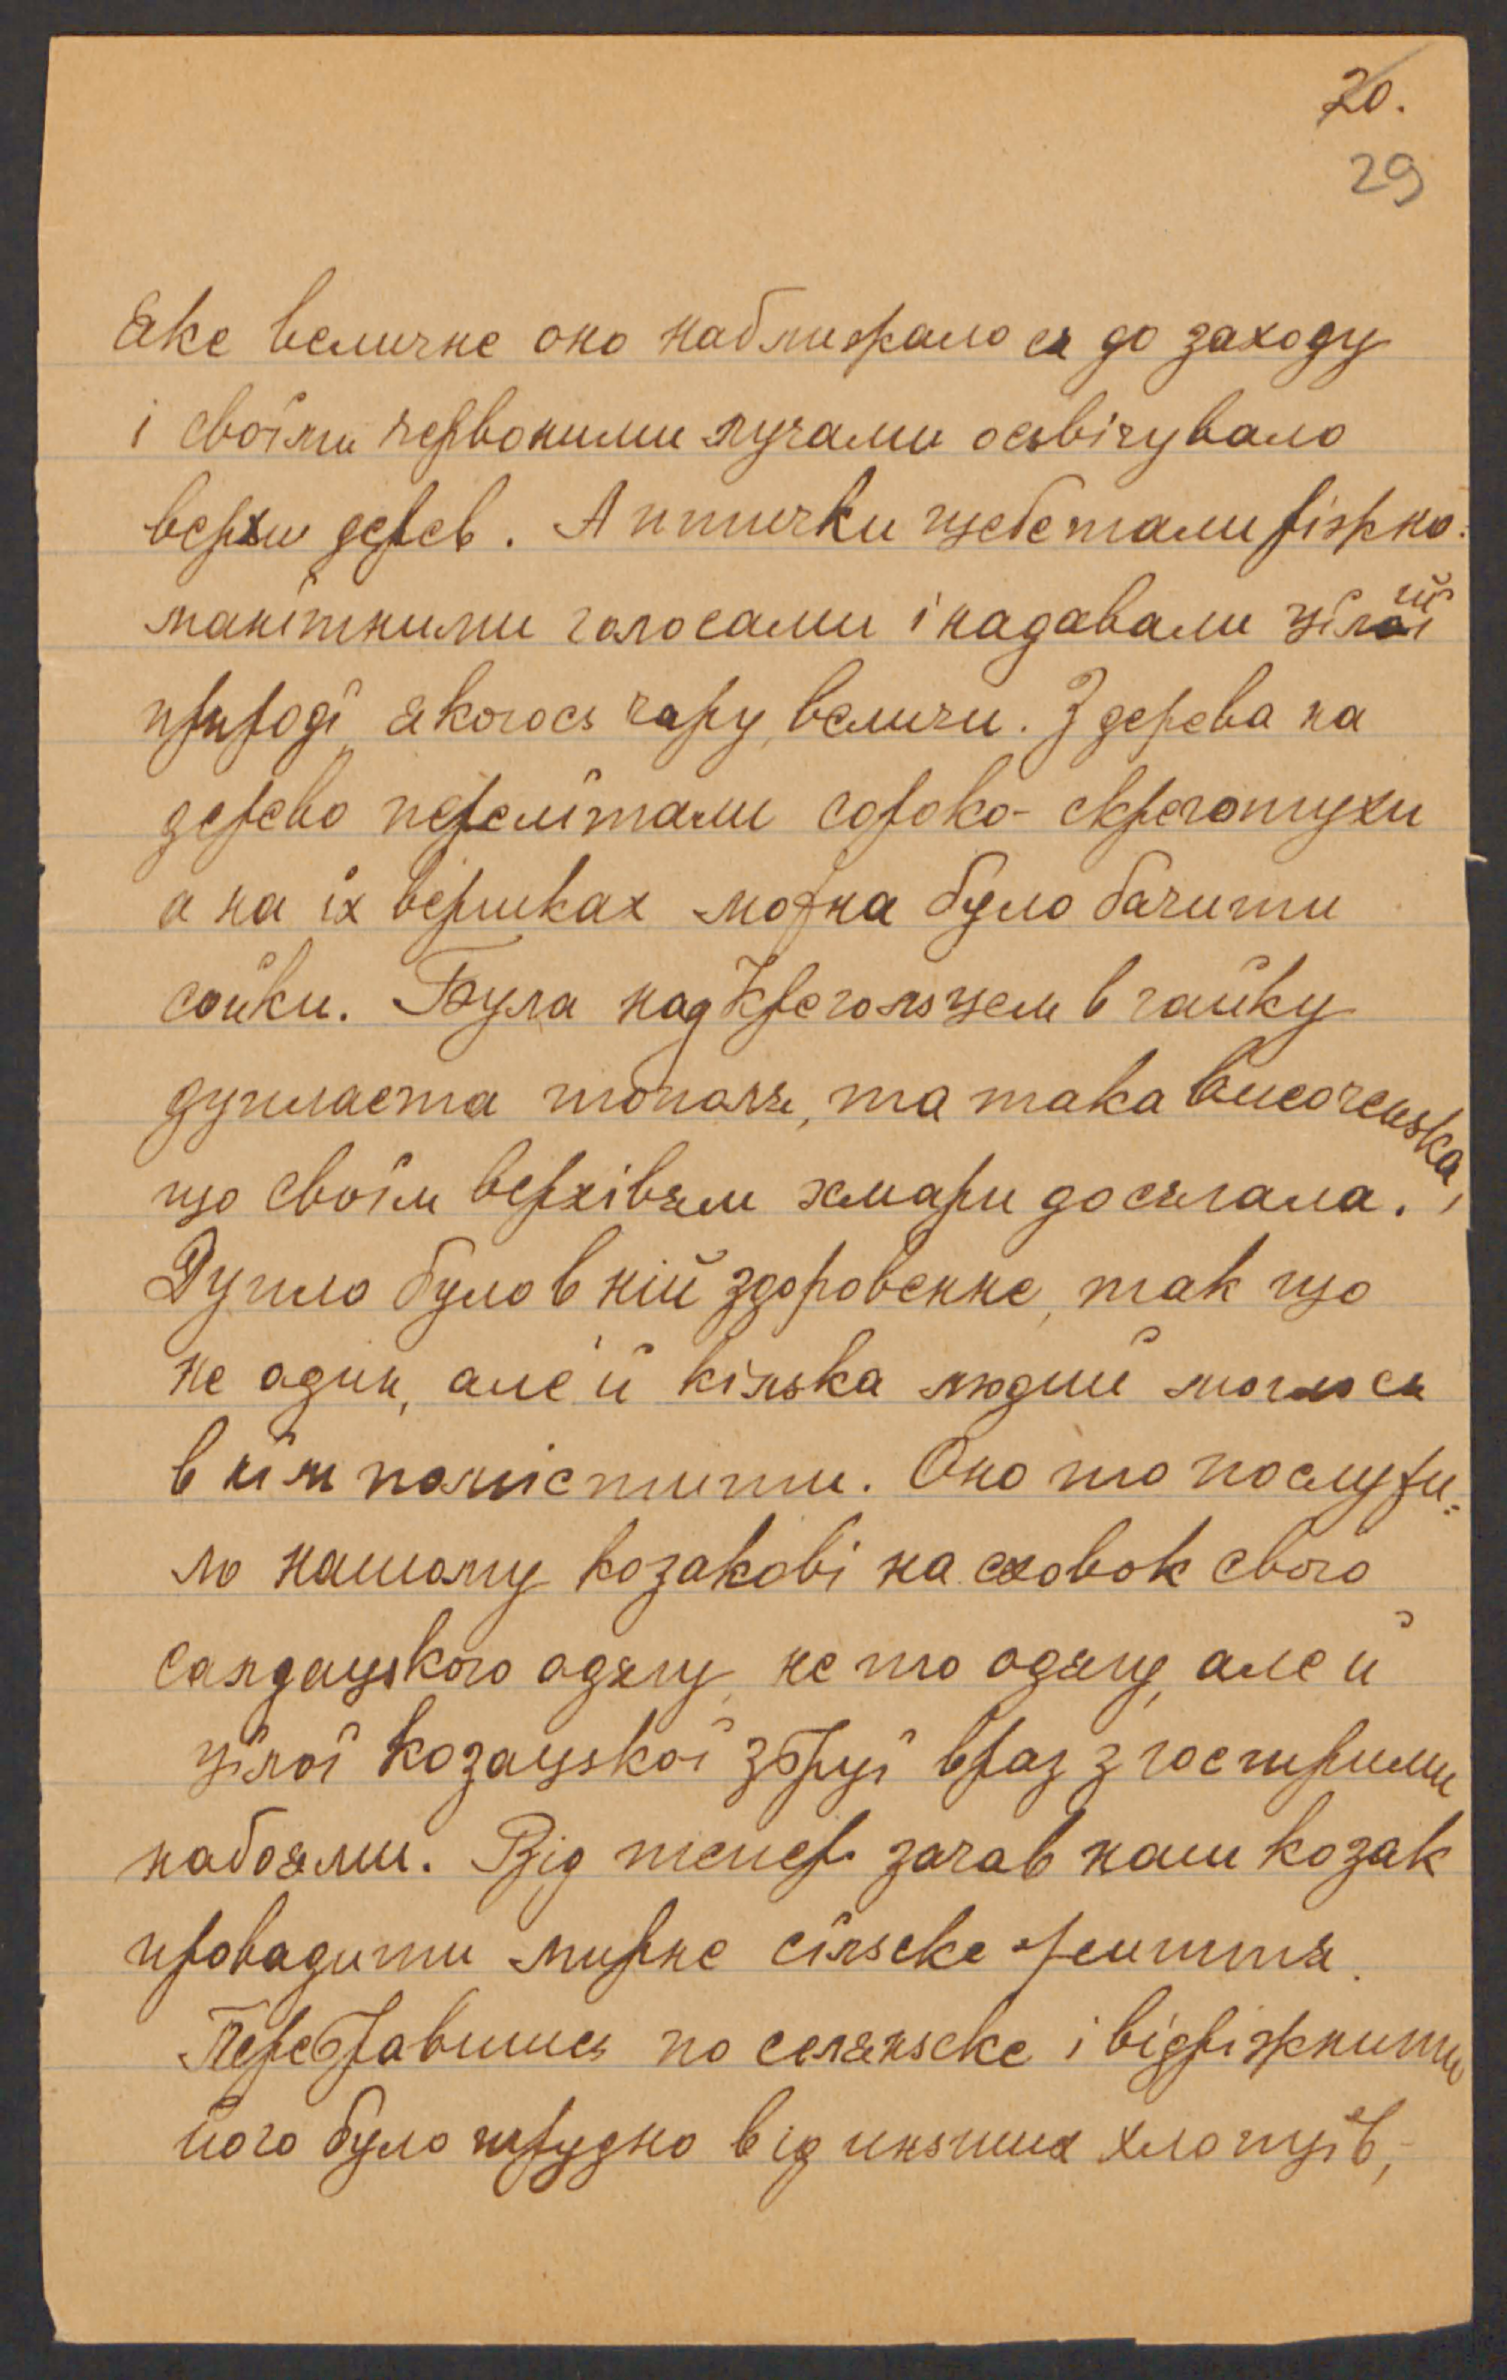 20.
29
Яке величне оно наближало ся до заходу
і своїми червоними лучами осьвічувало
верхи дерев. А птички щебетали ріжно=
манітними голосами і надавали цілій
природі якогось чару, величи. З дерева на
дерево перелїтали сороко-скреготухи
а на їх вершках можна було бачити
сойки. Була над Креголъцем в гайку
дупласта тополя, та така височенька,
що своїм верхівям хмари досягала.
Дупло було в ній здоровенне, так що
не один, але й кілька людий моглось
в нїм помістити. Оно то послужи=
ло нашому козакові на сховок свого
салдацького одягу, не то одягу, але й
цїлої козацької збруї враз з гострими
набоями. Від тепер зачав наш козак
провадити мирне сїльске життя.
Перебравшись по селяньске і відріжнити
його було трудно від инших хлопцїв,-